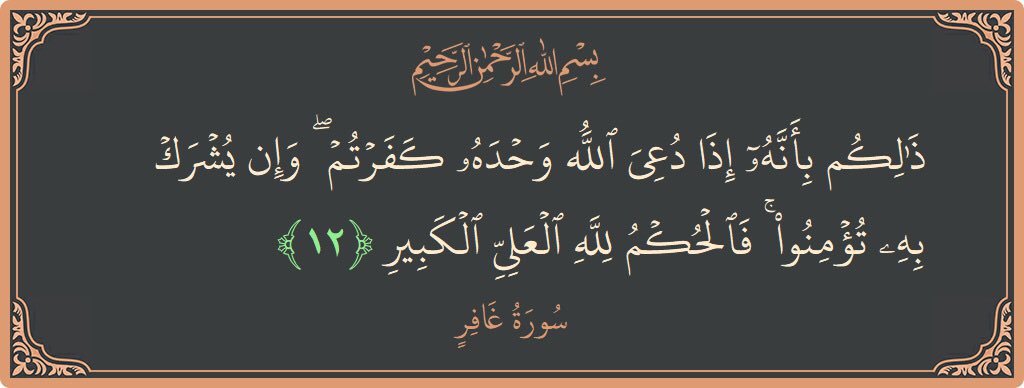 بِسْمِ اللهِ الرَّحْمٰنِ الرَّحِيْمِ
ذَٰلِكُم بِأَنَّهُۥٓ إِذَا دُعِىَ ٱللَّهُ وَحْدَهُۥ كَفَرْتُمْ ۖ وَإِن يُشْرَكْ
بِهِۦ تُؤْمِنُوا۟ ۚ فَٱلْحُكْمُ لِلَّهِ ٱلْعَلِىِّ ٱلْكَبِيرِ ﴿١٢﴾
سُورَةُ غَافِرٍ